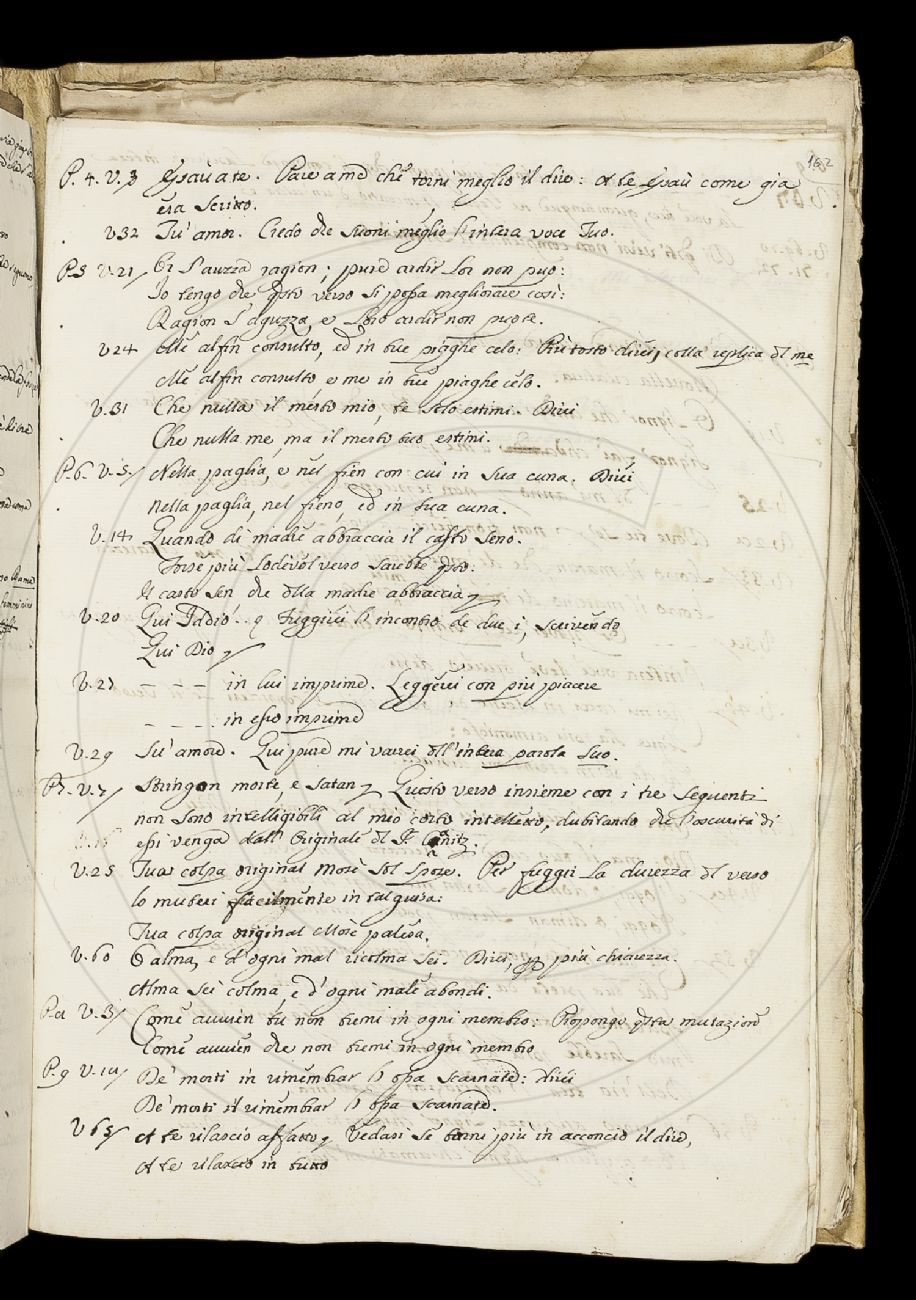 162
P. 4. V. 3 Esau a te. Pare a me che torni meglio il dire: A te Esau come gia
era scritto.
V 32 Tu' amor. Credo che suoni meglio l'intera voce Tuo.
P.5 V. 21/ ragion; pure ardir non può:
Io tengo che questo verso si possa megliorare così:
Ragion s'aguzza, e ardir non puote.
V 24 Me alfin consulto, ed in tue piaghe celo: Più tosto direi, colla replica del me
Me alfin consulto, e me in tue piaghe celo.
V. 31 Che nulla il merto mio, te solo estimi. Direi
Che nulla me, ma il merto tuo estimi.
P. 6. V. 5/ Nella paglia, e nel fien con cui in sua cuna. Direi
nella paglia, nel fieno, ed in sua cuna.
V. 14 Quando di madre abbraccia il casto seno.
Forse più lodevol verso sarebbe questo:
Il casto sen che della madre abbraccia
V. 20 Qui Iddio... Fuggirei l'incontro de due i, scrivendo
Qui Dio
V. 27 - - - - in lui imprime. Leggerei con più piacere
- - - - in esso imprime
V. 29 Su' amore. Qui pure mi varrei dell'intera parola Suo.
P7. V. 7/ Stringon morte, e satan Questo verso insieme con i tre seguenti
non sono intelligibili al mio corto intelletto, dubitando che l'oscurità di
essi venga dall' Originale del P. Canitz.
V. 25 Tua colpa original more sol Per fuggir la durezza del verso
lo muterei facilmente in tal guisa:
Tua colpa original palesa.
V. 60 O alma, e d'ogni mal ricolma sei. Direi, per più chiarezza.
Alma sei colma, e d'ogni male abondi.
V. 3/ Come avvien tu non tremi in ogni membro: Propongo questa mutazione
Come avvien che non tremi in ogni membro
P. 9 De' morti in rimembrar l'ossa scarnate: direi
De' morti il rimembrar l'ossa scarnate.
V 65/ A te rilascio affatto, Vedasi se torni più in acconcio il dire,
A te rilascio in tutto